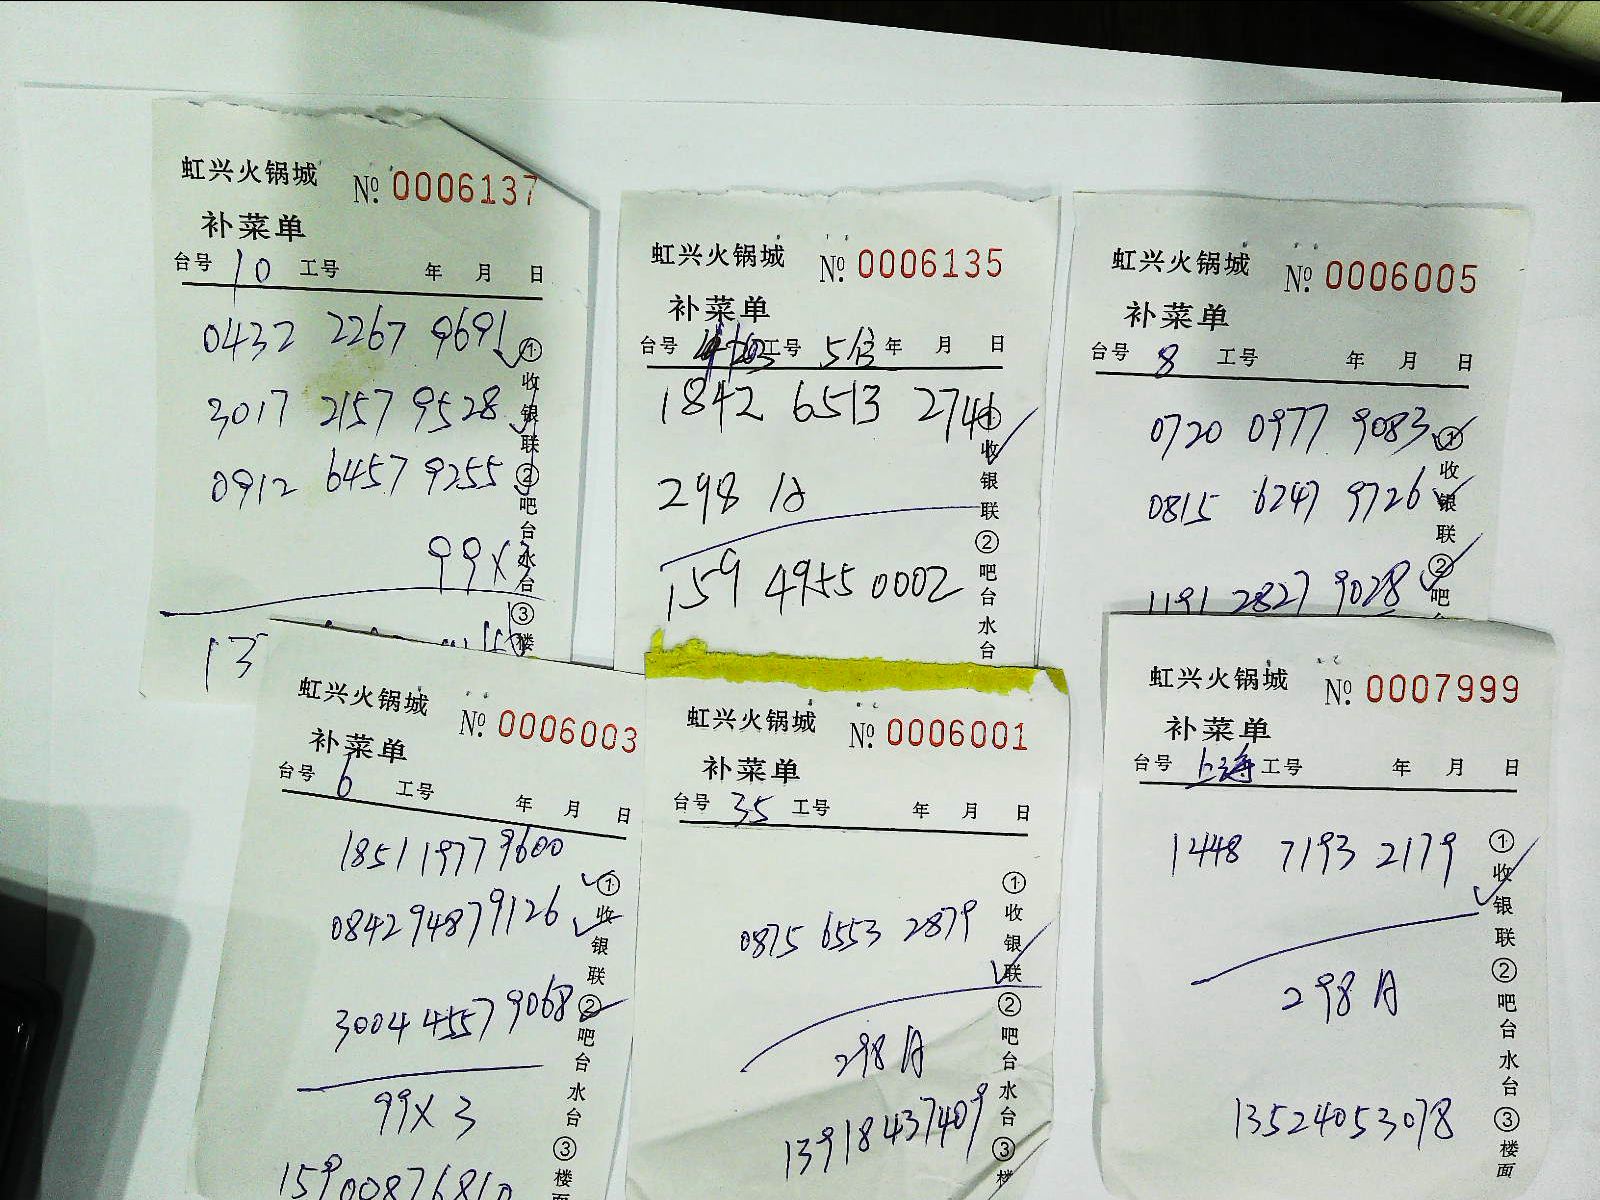 虹兴火锅城 № 0006137
补菜单
台号 10 工号 年 月 日
0432 2267 9691
3017 2157 9528
0912 6457 9255
99X3
13
①收银联②吧台水台③楼
虹兴火锅城 № 0006135
补菜单
台号 工号 年 月 日
1842 6513 2746
298 A
159 4955 0002
①收银联②吧台水台
虹兴火锅城 № 0006005
补菜单
台号 8 工号 年 月 日
0720 0977 9083
0815 6247 9726
1191 2827 9028
①收银联②吧
虹兴火锅城 № 0006003
补菜单
台号 6 工号 年 月 日
1851 1977 9600
0842 9487 9126
3004 4557 9068
99X3
15900876810
①收银联②吧台水台③楼面
虹兴火锅城 № 0006001
补菜单
台号 35 工号 年 月 日
0875 6553 2879
298 A
13918437409
①收银联②吧台水台③楼
虹兴火锅城 № 0007999
补菜单
台号 上海 工号 年 月 日
1448 7193 2179
298 A
13524053078
①收银联②吧台水台③楼面